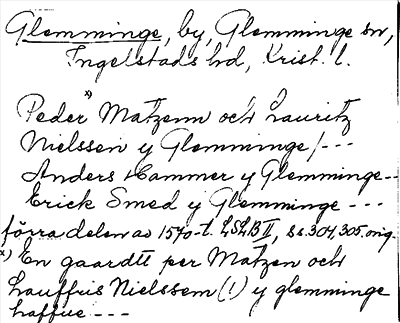 Glemminge, by, Glemminge sn,
Ingelstads hd, Krist. l.
Peder x) Matzenn och Lauritz
Nielssen y Glemminge/---
Anders Hammer y Glemminge--
Erick Smed y Glemminge ---
förra delen av 1570-t. LSLB II, ss. 304, 305. orig.
x) En gaardtt per Matzen och
Lauffris Nielssem (!) y glemminge
haffue ---